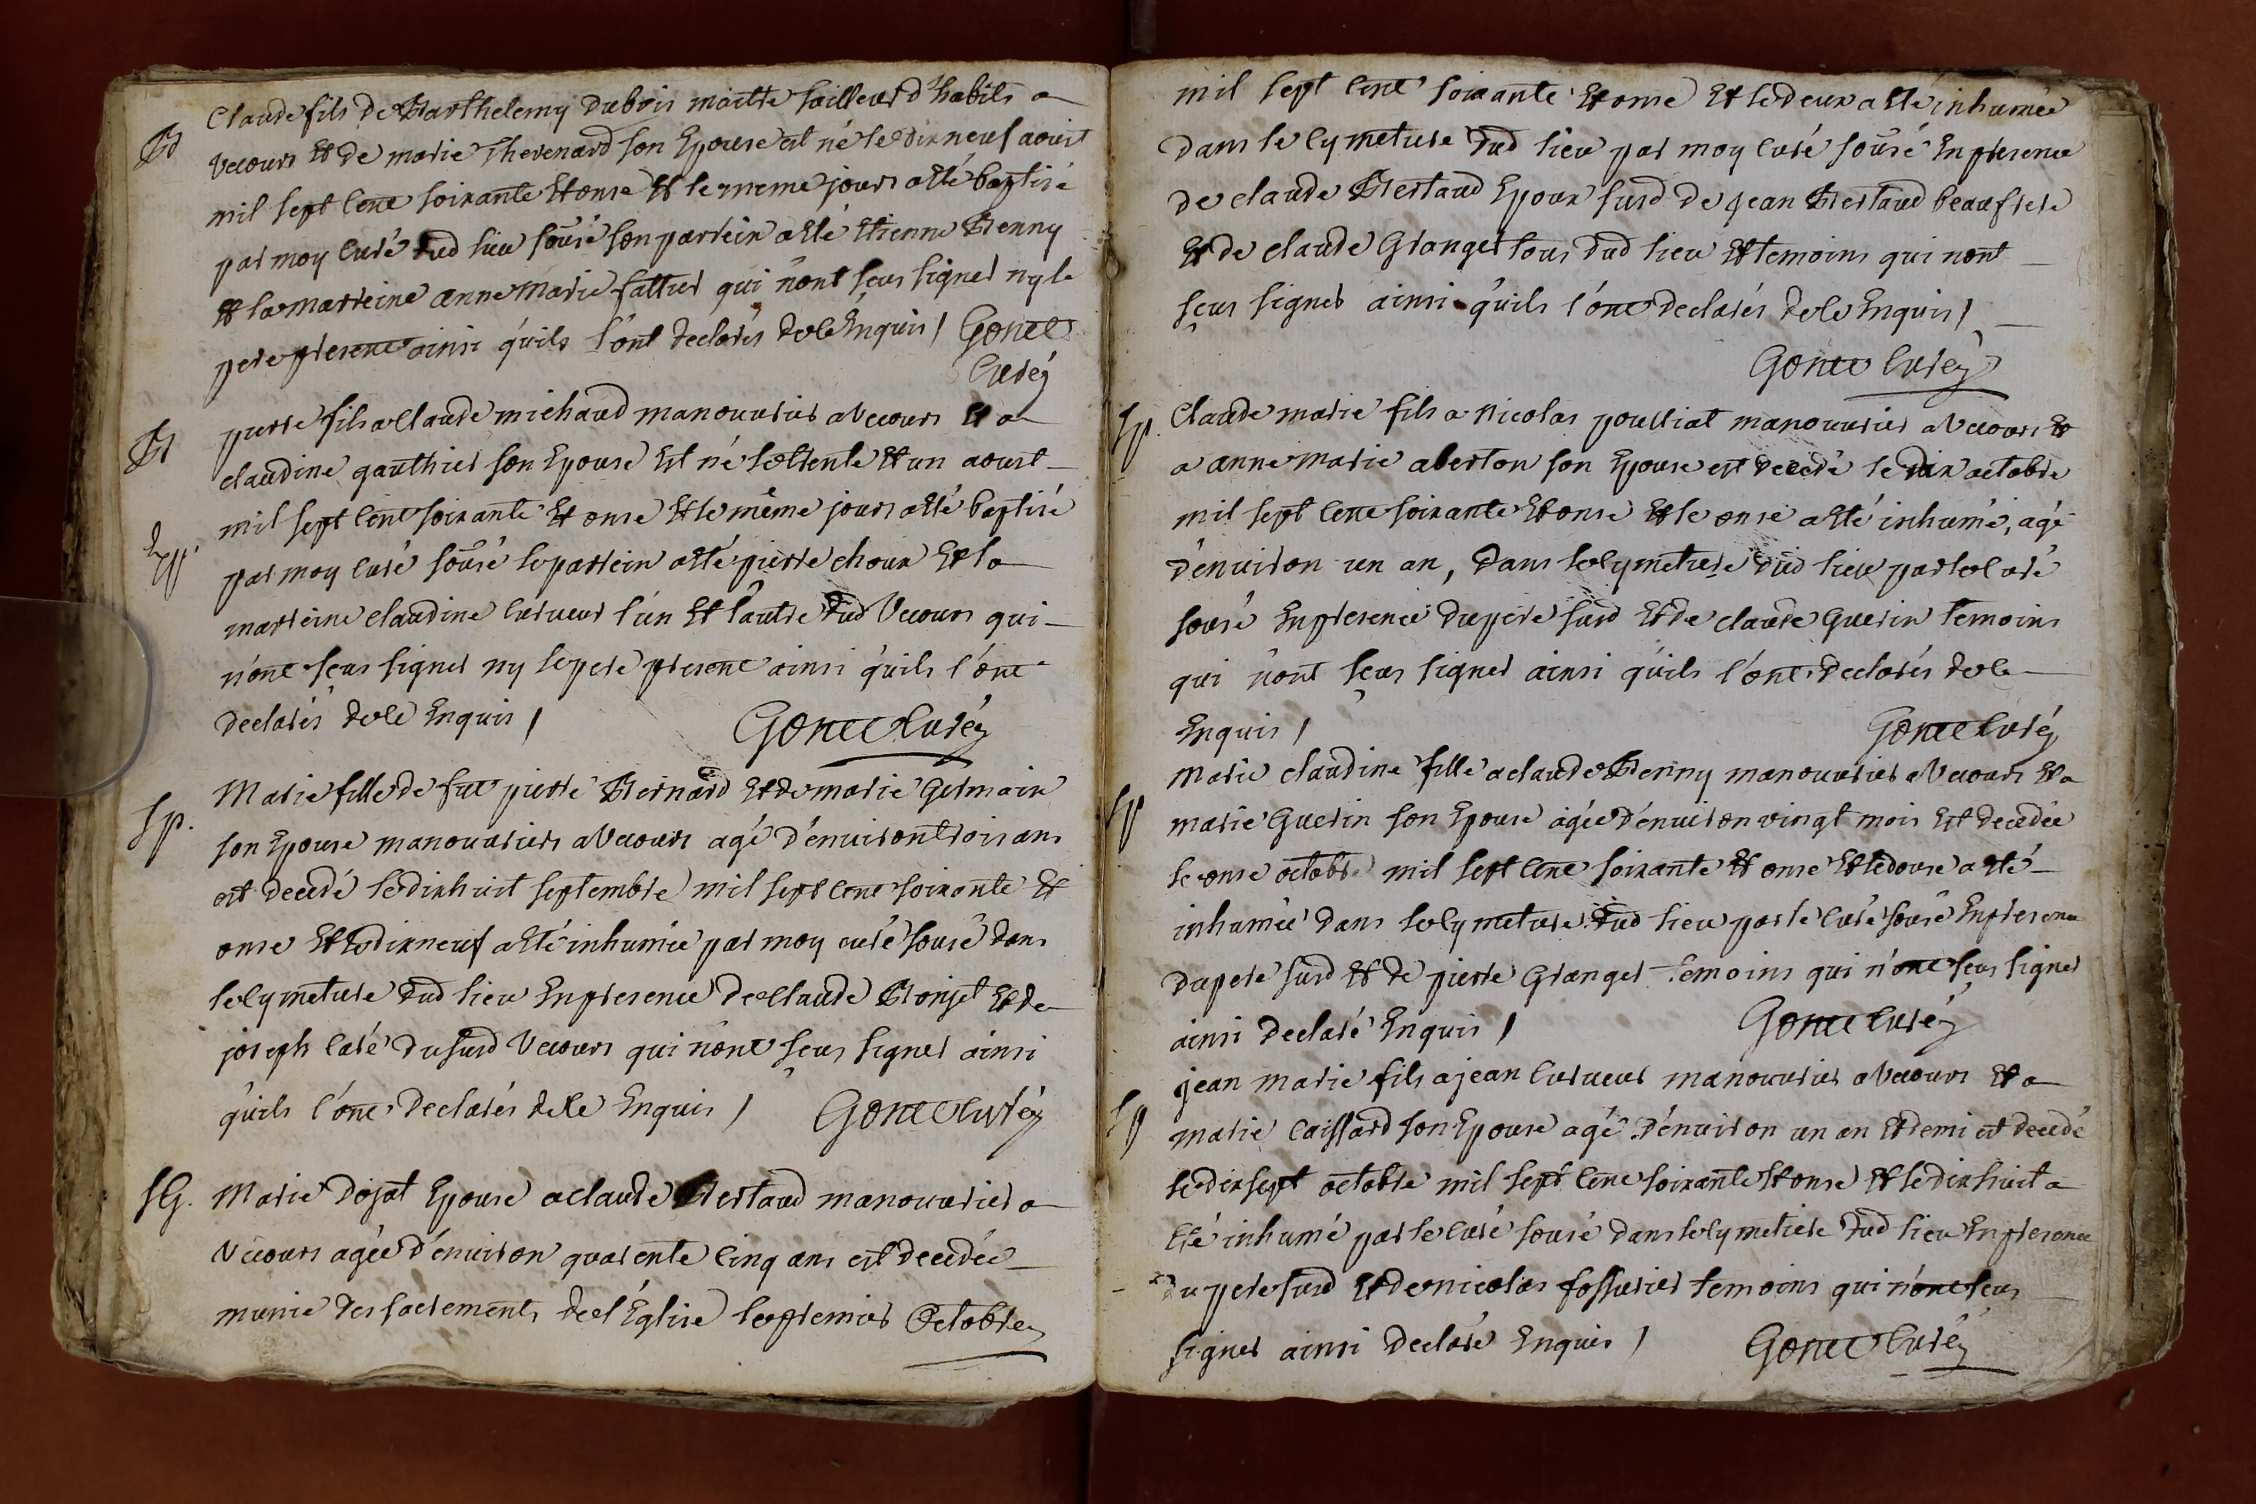 Bt Claude fils de Barthelemy Dubois maitre tailleur d'habits a
Vecours Et de marie Thevenard son Epouse est né le dix neuf aoust
mil sept cent soixante Et onse Et le meme jour a eté baptisé
par moy curé dud lieu sousé son parrein a eté Etienne Benny
Et la marreine anne marie fattier qui n'ont sçus signer ny le
pere present ainsi qu'ils l'ont declarés de ce Enquis / Gonet
Curéz
Bt pierre fils a Claude michaud manouvrier a Vecours Et a
claudine gauthier son Epouse Est né le trente Et un aoust
mil sept cent soixante Et onse Et le même jour a eté baptisé
par moy curé sousé le parrein a eté pierre choux Et la
marreine claudine curveur l'un Et l'autre dud Vecours qui
n'ont sçus signer ny le pere present ainsi qu'ils l'ont
declarés de ce Enquis / Gonet Curéz
Sp. Marie fille de fut pierre Bernard Et de marie Germain
son Epouse manouvriers a Vecours agé d'environt trois ans
est decedé le dix huit septembre mil sept cent soixante Et
onse Et le dix neuf a eté inhumée par moy curé sousé dans
le cymeture dud lieu En presence de Claude Bronjet Et de
joseph caré du susd Vecours qui n'ont sçus signer ainsi
qu'ils l'ont declarés de ce Enquis / Gonet Curéz
SG. Marie Dojat Epouse a claude Bertaud manouvrier a
Vecours agée d'environ quarente cinq ans est decedée
munie des sacrements de l'Eglise le premier Octobre
mil sept cent soixante Et onse Et le deux a eté inhumée
dans le cymeture dud lieu par moy curé sousé En presence
de claude Bertaud Epoux susd de jean Bertaud beaufrere
Et de claude Granger tous dud lieu Et temoins qui nont
sçus signer ainsi qu'ils l'ont declarés de ce Enquis /
Gonet Curéz
Sp. Claude marie fils a nicolas poulliat manouvrier a Vecours Et
a anne marie alerton son Epouse est decedé le dix octobre
mil sept cent soixante Et onse Et le onse a eté inhumé, agé
d'environ un an, dans le cymeture dud lieu par le curé
sousé En presence du pere susd Et de claude Guerin temoins
qui n'ont sçus signer ainsi qu'ils l'ont declarés de ce
Enquis / Gonet Curéz
Sp marie claudine fille a claude Benny manouvrier a Vecours Et a
marie Guerin son Epouse agée d'environ vingt mois Est decedée
le onse octobre mil sept cent soixante Et onse Et le douse a eté
inhumée dans le cymeture dud lieu par le curé sousé En presence
du pere susd Et de pierre Granger temoins qui n'ont sçus signer
ainsi declaré Enquis / Gonet Curéz
jean marie fils a jean curveur manouvrier a Vecours Et a
Sp marie caissard son Epouse agé d'environ un an Et demi est decedé
le dix sept octobre mil sept cent soixante Et onse Et le dix huit a
eté inhumé par le curé sousé dans le cymetiere dud lieu En presence
du pere susd Et de nicolas fossurier temoins qui n'ont sçus
signer ainsi declaré Enquis / Gonet Curéz